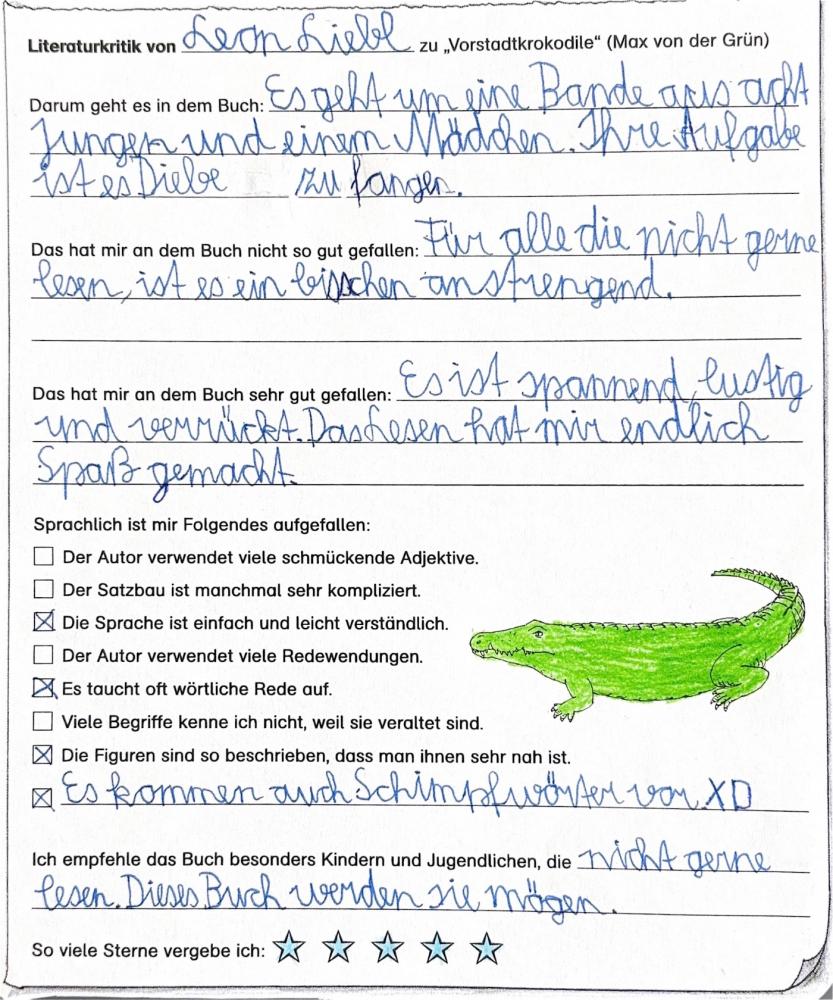 Literaturkritik von Leon Liebl zu „Vorstadtkrokodile“ (Max von der Grün)
Darum geht es in dem Buch: Es geht um eine Bande aus acht
Jungen und einem Mädchen. Ihre Aufgabe
ist es Diebe zu fangen.
Das hat mir an dem Buch nicht so gut gefallen: Für alle die nicht gerne
lesen, ist es ein bisschen anstrengend.
Das hat mir an dem Buch sehr gut gefallen: Es ist spannend, lustig
und verrückt. Das Lesen hat mir endlich
Spaß gemacht.
Sprachlich ist mir Folgendes aufgefallen:
☐ Der Autor verwendet viele schmückende Adjektive.
☐ Der Satzbau ist manchmal sehr kompliziert.
☒ Die Sprache ist einfach und leicht verständlich.
☐ Der Autor verwendet viele Redewendungen.
☒ Es taucht oft wörtliche Rede auf.
☐ Viele Begriffe kenne ich nicht, weil sie veraltet sind.
☒ Die Figuren sind so beschrieben, dass man ihnen sehr nah ist.
☒ Es kommen auch Schimpfwörter vor. XD
Ich empfehle das Buch besonders Kindern und Jugendlichen, die nicht gerne
lesen. Dieses Buch werden sie mögen.
So viele Sterne vergebe ich: ★ ★ ★ ★ ★